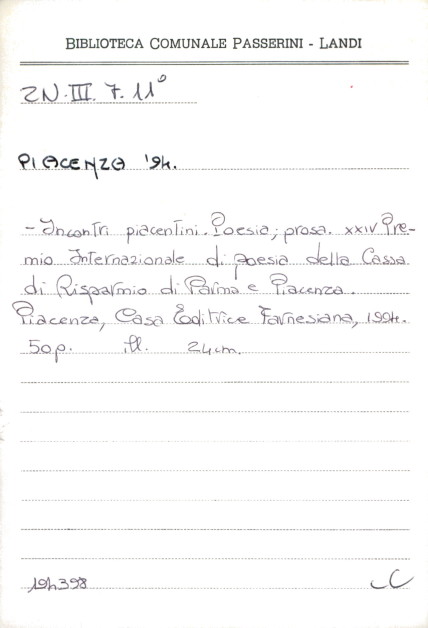 BIBLIOTECA COMUNALE PASSERINI - LANDI
ZN.III.7.11°
PIACENZA '94.
- Incontri piacentini. Poesia; prosa. XXIV Pre-
mio Internazionale di poesia della Cassa
di Risparmio di Parma e Piacenza.
Piacenza, Casa Editrice Farnesiana, 1994.
50p. ill. 24cm.
194398